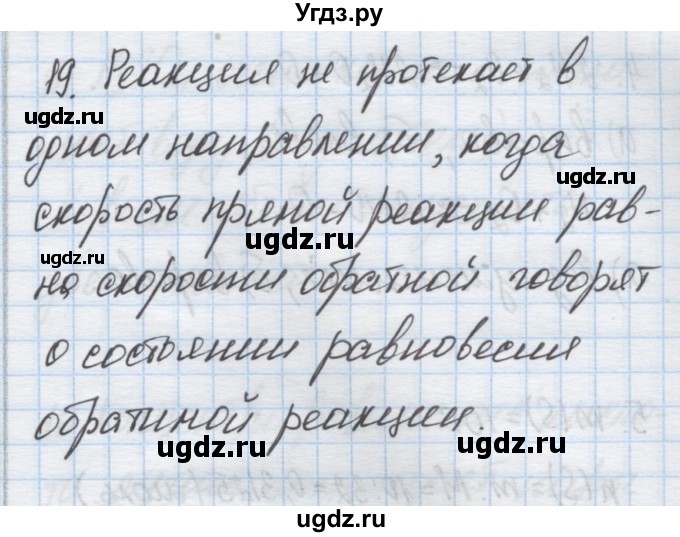 Угдз.ру
19. Реакция не протекает в
gdz.ru
ugdz.ru
одном направлении, когда
скорость пряной реакции рав-
ugdz.ru
ugdz.ru
но скорости обратной говорят
о состоянии равновесия
обратиной реакции.
ugdz.ru
ugdz.ru
ugdz.ru